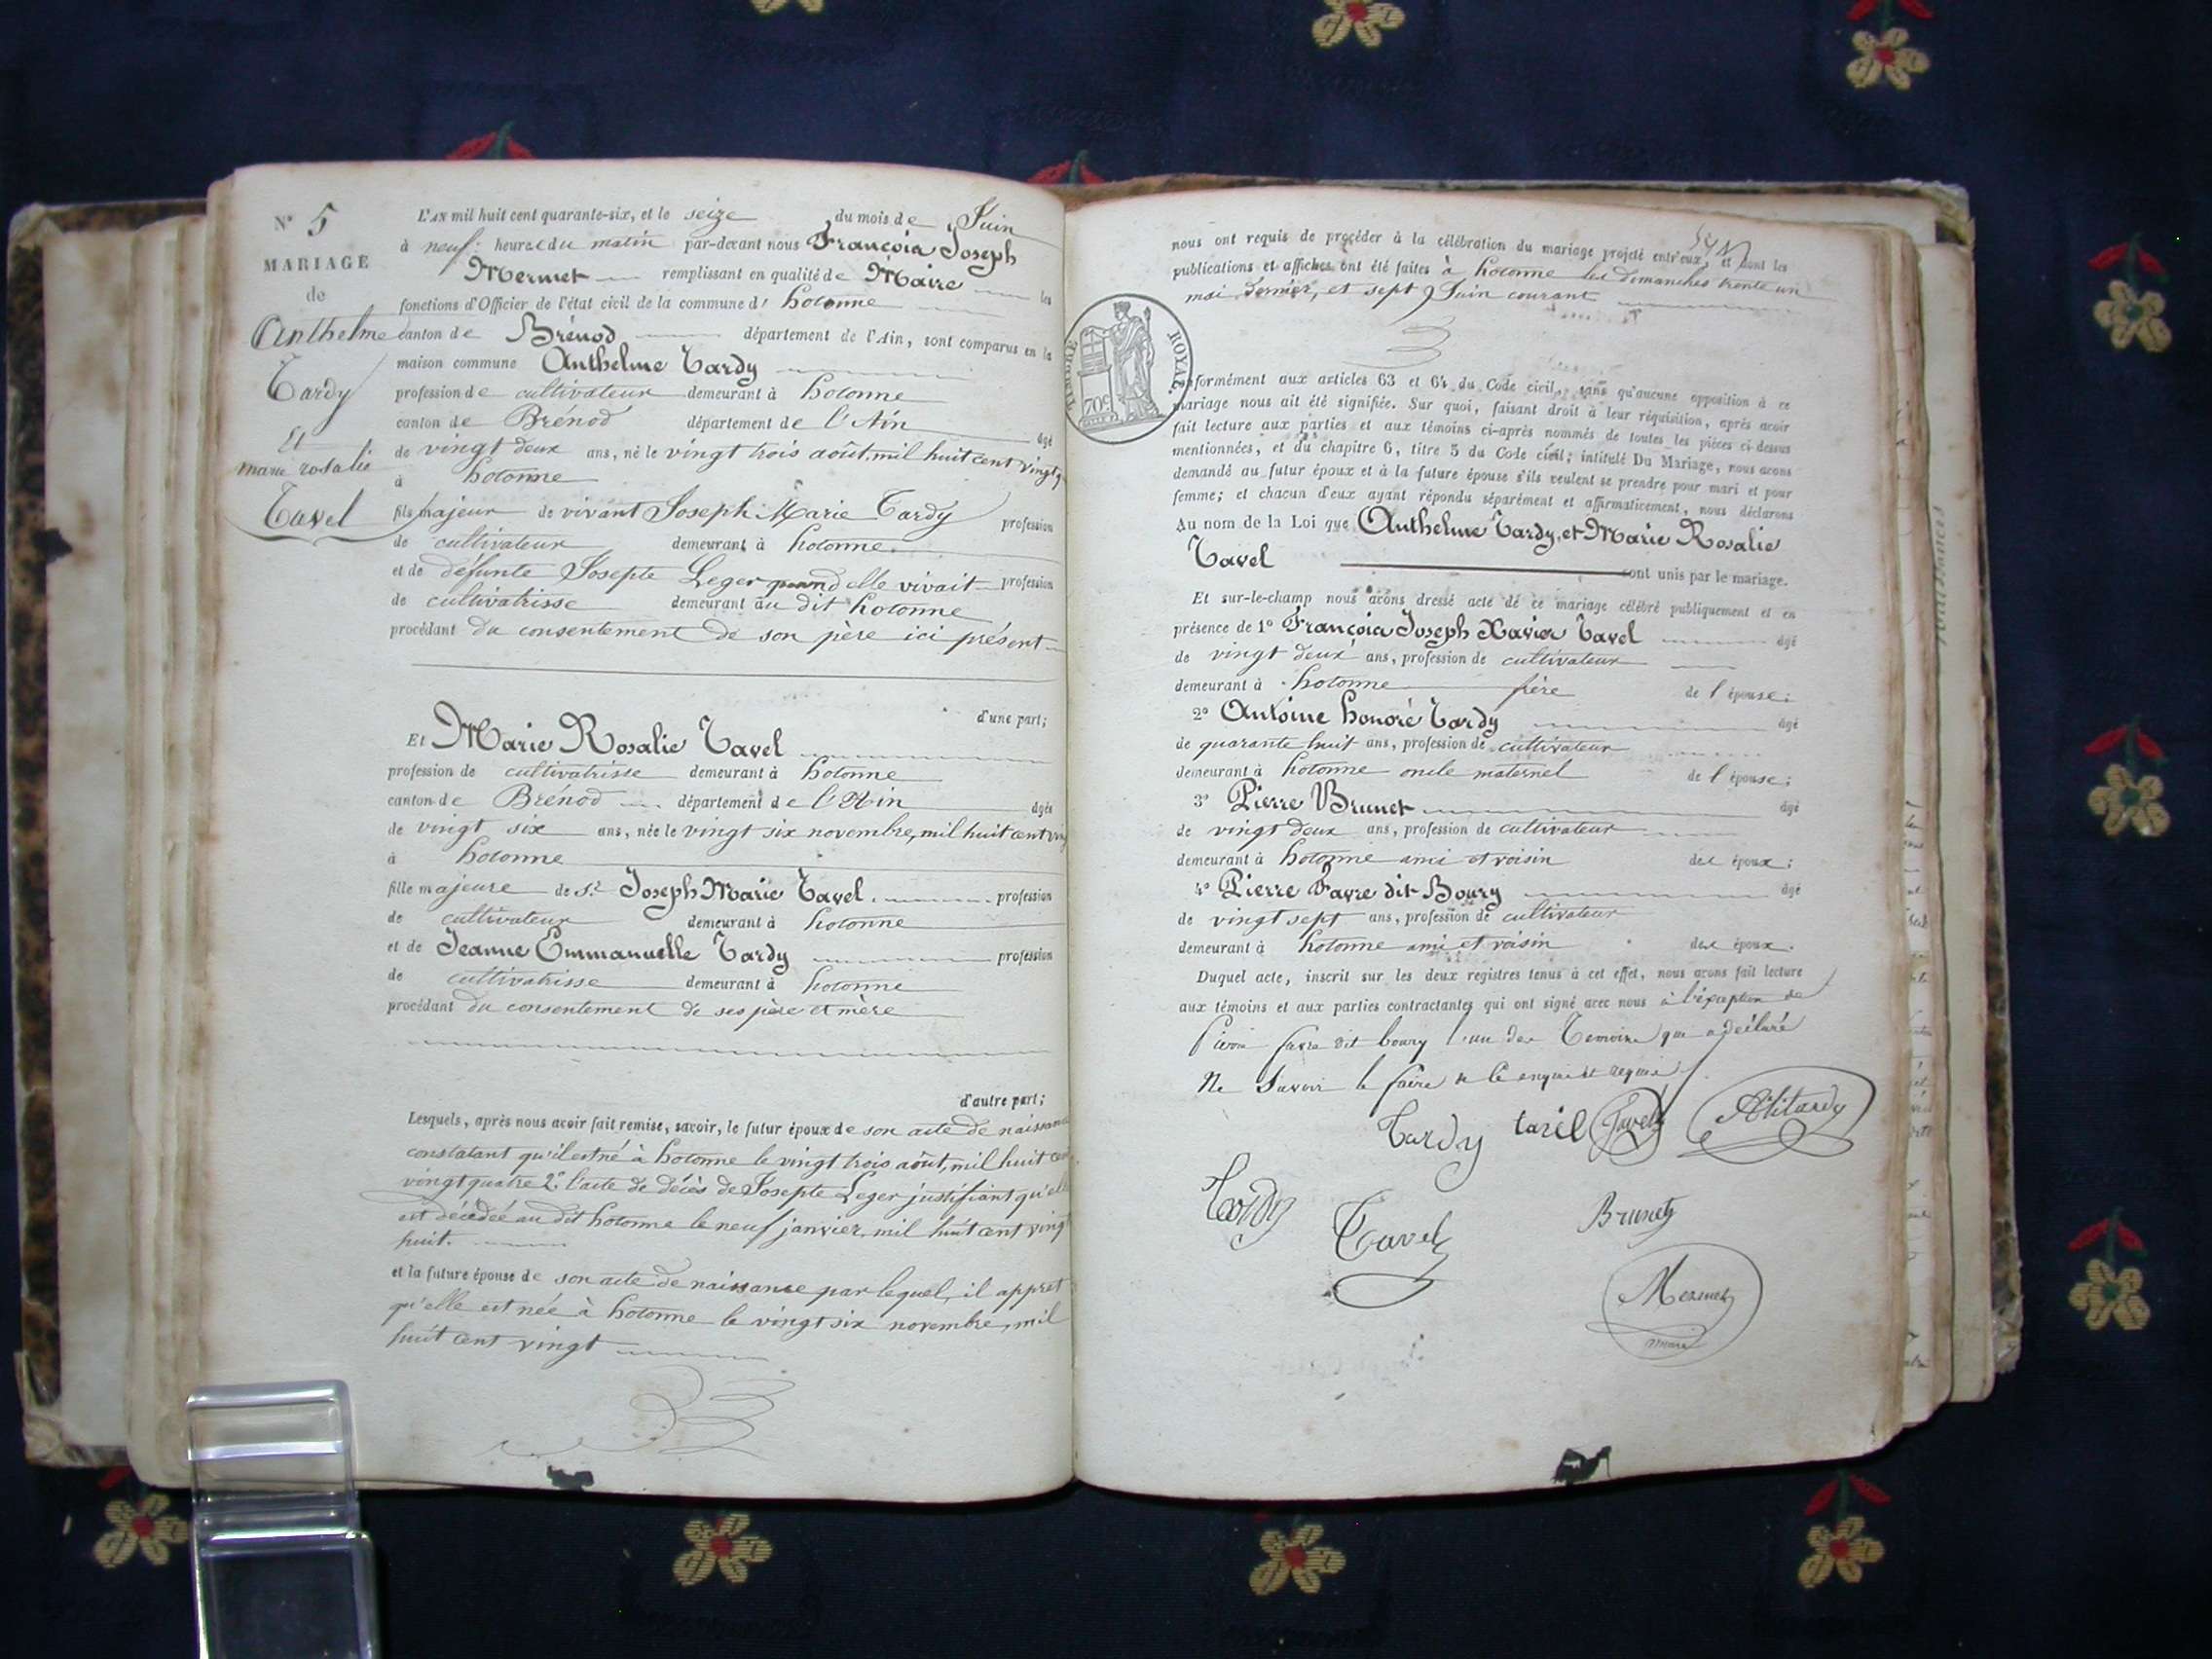 N° 5
MARIAGE
de
Anthelme
Tardy
Et
marie rosalie
Tavel
L'AN mil huit cent quarante-six, et le seize du mois de Juin
à neuf heures du matin par-devant nous François Joseph
Mermet remplissant en qualité de Maire les
fonctions d'Officier de l'état civil de la commune d' hotonne
canton de Brénod département de l'Ain, sont comparus en la
maison commune Anthelme Tardy
profession de cultivateur demeurant à hotonne
canton de Brénod département de l'Ain âgé
de vingt deux ans, né le vingt trois août, mil huit cent vingt
à hotonne
fils majeur de vivant Joseph Marie Tardy profession
de cultivateur demeurant à hotonne
et de défunte Josepte Leger quand elle vivait profession
de cultivatrisse demeurant au dit hotonne
procédant du consentement de son père ici présent
d'une part;
Et Marie Rosalie Tavel
profession de cultivatrisse demeurant à hotonne
canton de Brénod département de l'Ain âgée
de vingt six ans, née le vingt six novembre, mil huit cent
à hotonne
fille majeure de Sr Joseph Marie Tavel profession
de cultivateur demeurant à hotonne
et de Jeanne Emmanuelle Tardy profession
de cultivatrisse demeurant à hotonne
procédant du consentement de ses père et mère
d'autre part;
Lesquels, après nous avoir fait remise, savoir, le futur époux de son acte de naissance
constatant qu'il est né à hotonne le vingt trois août, mil huit
vingt quatre 2° l'acte de décès de Josepte Leger justifiant qu'elle
est décédée au dit hotonne le neuf janvier, mil huit cent vingt
huit.
et la future épouse de son acte de naissance par lequel, il appret
qu'elle est née à hotonne le vingt six novembre, mil
huit cent vingt
nous ont requis de procéder à la célébration du mariage projeté entr'eux, et dont les
publications et affiches ont été faites à hotonne les dimanches trente un
mai dernier, et sept Juin courant
TIMBRE ROYAL.
70c
conformément aux articles 63 et 64 du Code civil, sans qu'aucune opposition à ce
mariage nous ait été signifiée. Sur quoi, faisant droit à leur réquisition, après avoir
fait lecture aux parties et aux témoins ci-après nommés de toutes les pièces ci-dessus
mentionnées, et du chapitre 6, titre 5 du Code civil; intitulé Du Mariage, nous avons
demandé au futur époux et à la future épouse s'ils veulent se prendre pour mari et pour
femme; et chacun d'eux ayant répondu séparément et affirmativement, nous déclarons
Au nom de la Loi que Anthelme Tardy, et Marie Rosalie
Tavel sont unis par le mariage.
Et sur-le-champ nous avons dressé acte de ce mariage célébré publiquement et en
présence de 1° François Joseph Xavier Tavel âgé
de vingt deux ans, profession de cultivateur
demeurant à hotonne frère de l'épouse;
2° Antoine honoré Tardy âgé
de quarante huit ans, profession de cultivateur
demeurant à hotonne oncle maternel de l'épouse;
3° Pierre Brunet âgé
de vingt deux ans, profession de cultivateur
demeurant à hotonne ami et voisin des époux;
4° Pierre Favre dit Boury âgé
de vingt sept ans, profession de cultivateur
demeurant à hotonne ami et voisin des époux.
Duquel acte, inscrit sur les deux registres tenus à cet effet, nous avons fait lecture
aux témoins et aux parties contractantes qui ont signé avec nous à l'éxception de
Pierre favre dit boury l'un des Temoins qui a déclaré
Ne Savoir le faire de ce enquis et requis
Tardy tavel Tavel AHtardy
Tardy
Tavel
Brunet
Mermet
maire